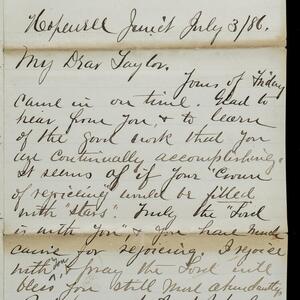 Hopewell Junct July 3/86.
My Dear Taylor.
Yours of Friday
came in on time. Glad to
hear from you & to learn
of the good work that you
are continually accomplishing.
It seems as if your "Crown
of rejoicing" would be filled
with "stars". Truly the "Lord
is with you" & you have much
cause for rejoicing. I rejoice
with you & pray the Lord will
bless you still more abundantly.